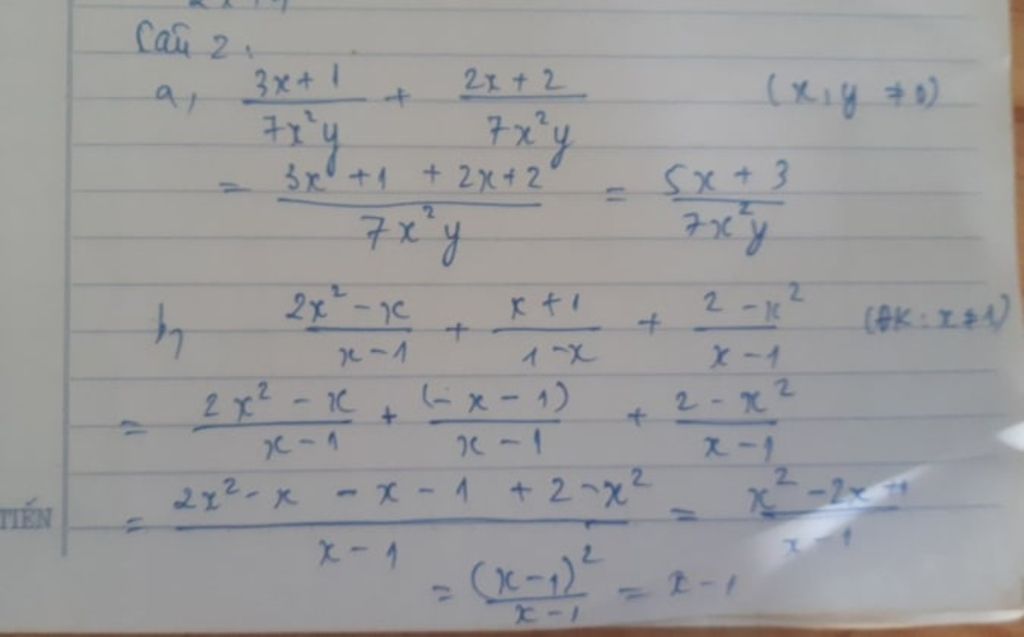 Câu 2:
a, \frac{3x+1}{7x^2y} + \frac{2x+2}{7x^2y} (x, y ≠ 0)
= \frac{3x+1+2x+2}{7x^2y} = \frac{5x+3}{7x^2y}
b, \frac{2x^2-x}{x-1} + \frac{x+1}{1-x} + \frac{2-x^2}{x-1} (ĐK: x ≠ 1)
= \frac{2x^2-x}{x-1} + \frac{(-x-1)}{x-1} + \frac{2-x^2}{x-1}
= \frac{2x^2-x-x-1+2-x^2}{x-1} = \frac{x^2-2x+1}{x-1}
TIẾN
= \frac{(x-1)^2}{x-1} = x-1